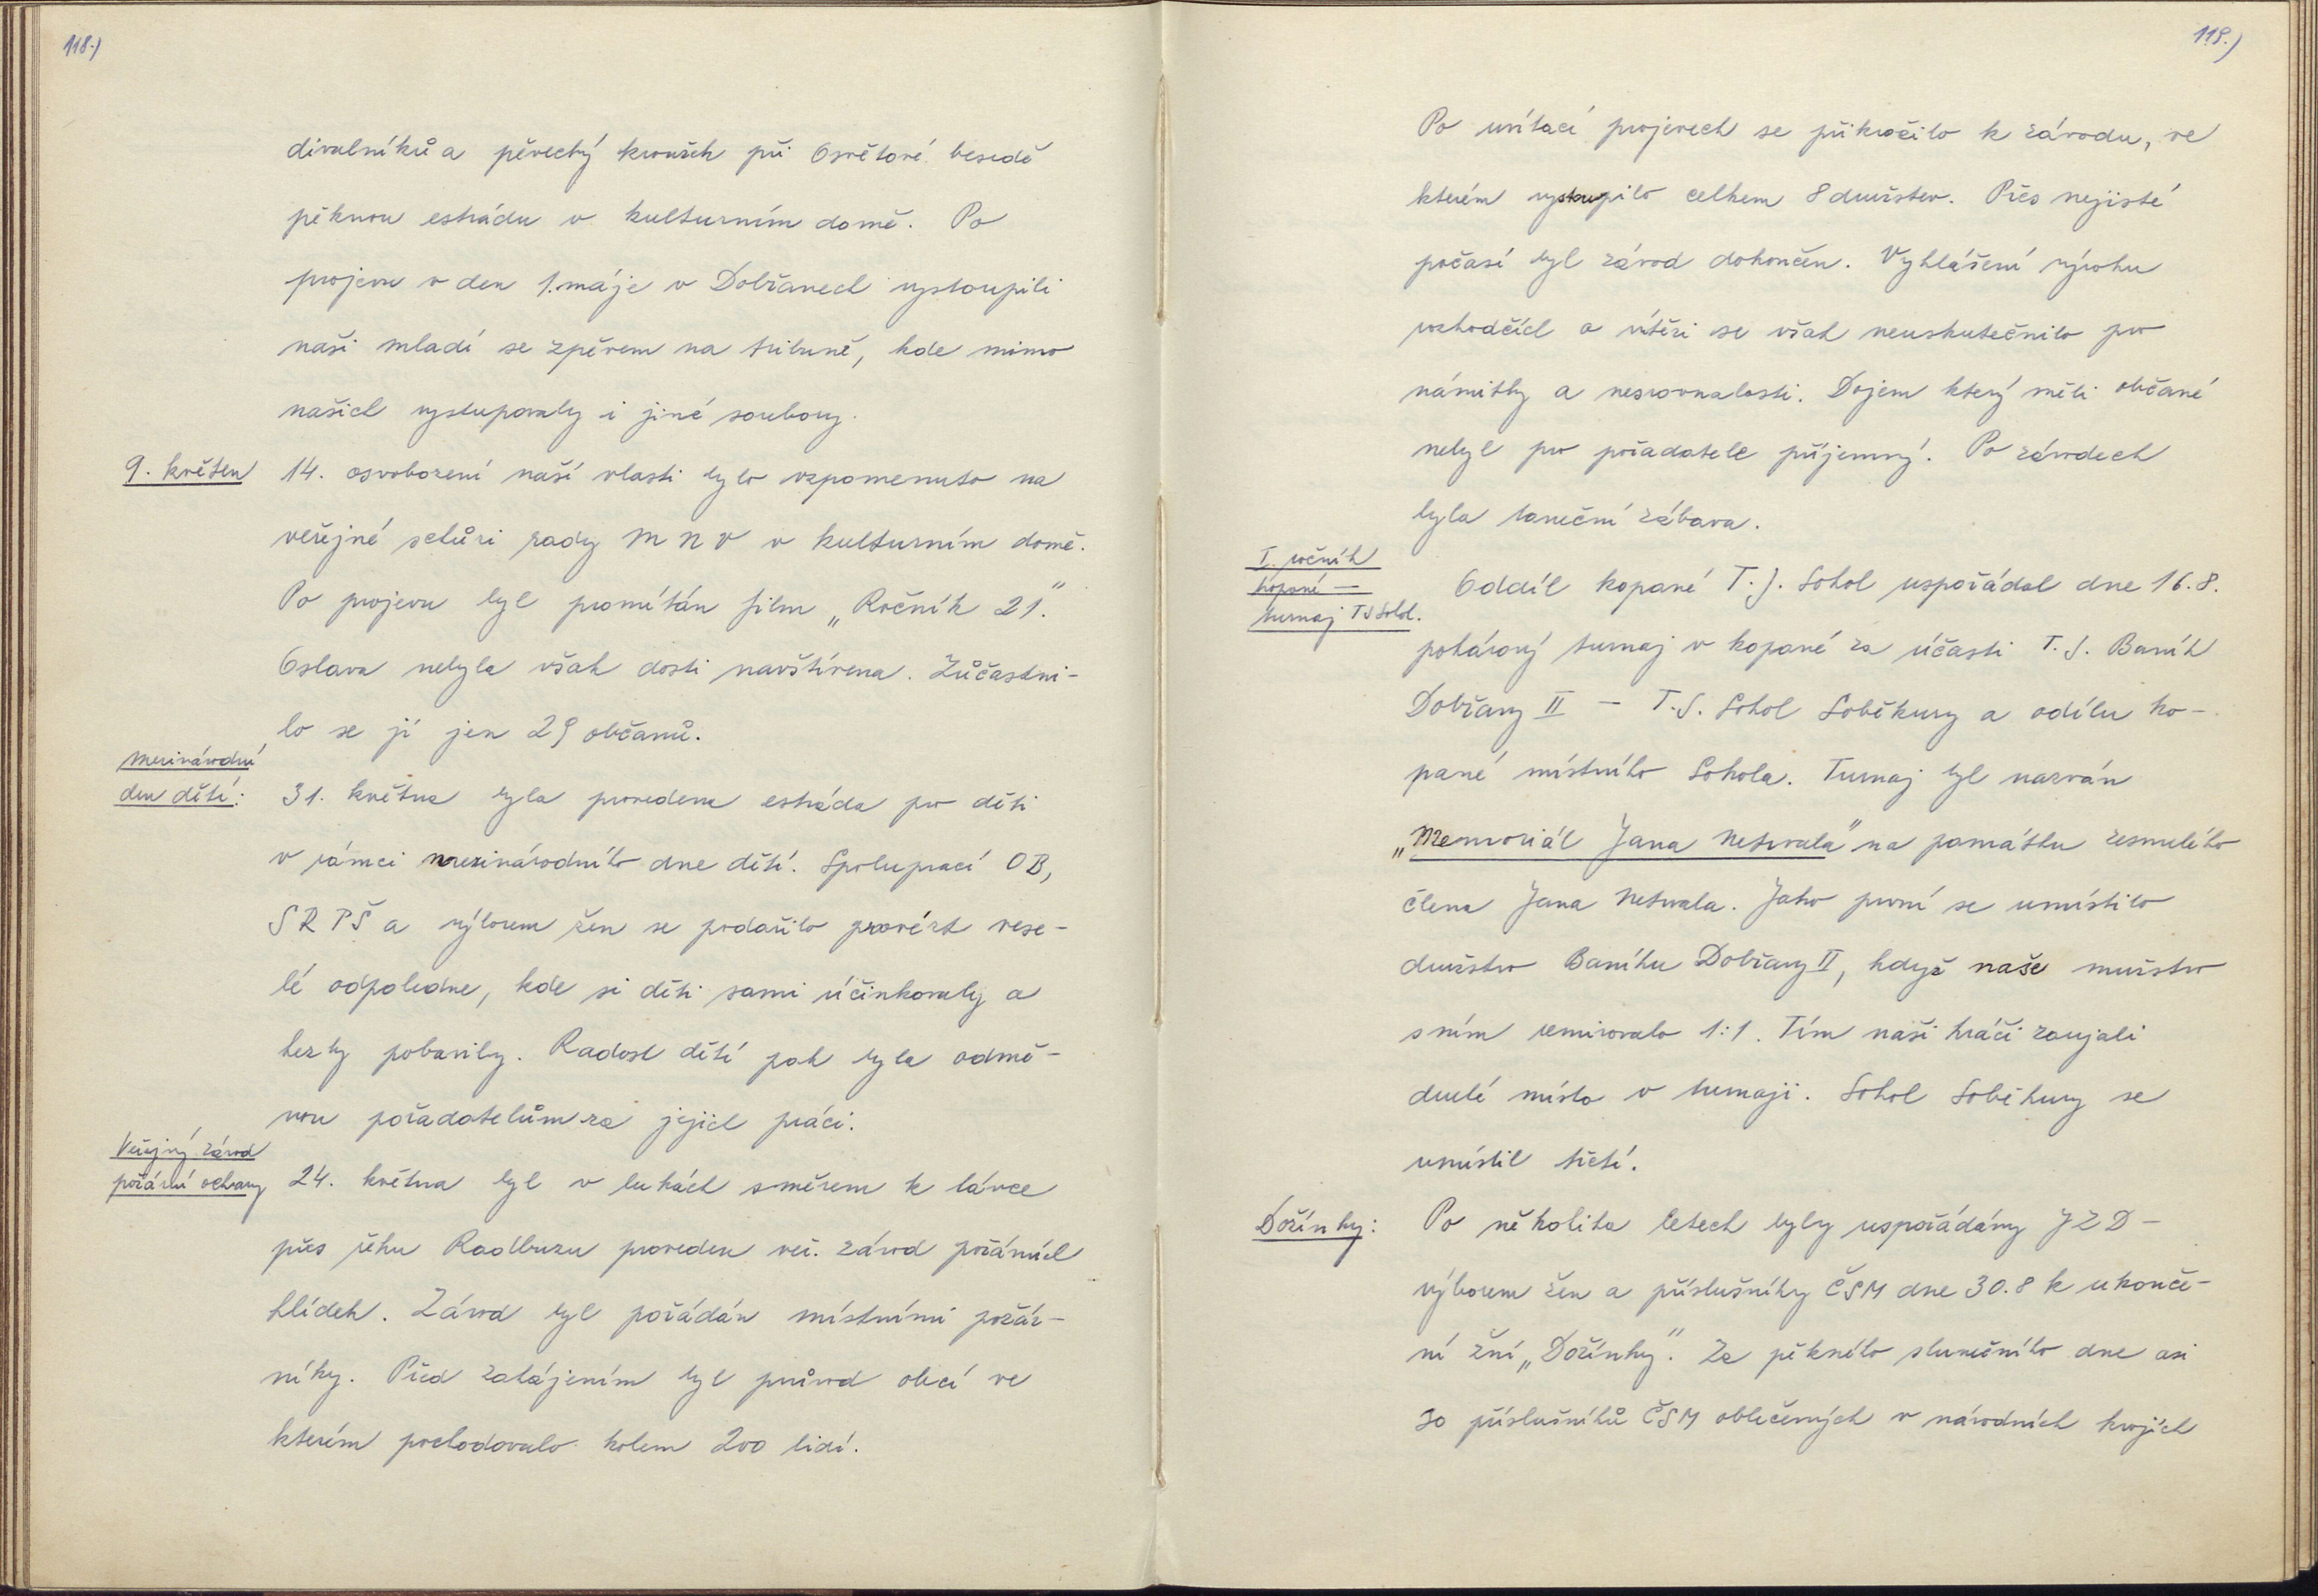 118.)
divalníků a pěvecký kroužek při Osvětové besedě
pěknou estrádu v kulturním domě. Po
projevu v den 1. máje v Dobřanech vystoupili
naši mladí se zpěvem na tribuně, kde mimo
našich vystupovaly i jiné soubory.
9. květen
14. osvobození naší vlasti bylo vzpomenuto na
veřejné schůzi rady MNV v kulturním domě.
Po projevu byl promítán film „Ročník 21."
Oslava nebyla však dosti navštívena. Zůčastni-
lo se jí jen 29 občanů.
Mezinárodní
den dětí:
31. května byla provedena estráda pro děti
v rámci mezinárodního dne dětí. Spoluprací OB,
SRPŠ a výborem žen se podařilo provézt vese-
lé odpoledne, kde si děti sami účinkovaly a
hezky pobavily. Radost dětí pak byla odmě-
nou pořadatelům za jejich práci.
Veřejný závod
požární ochrany
24. května byl v lukách směrem k lávce
přes řeku Radbuzu proveden veř. závod požárních
hlídek. Závod byl pořádán místními požár-
níky. Před zahájením byl průvod obcí ve
kterém pochodovalo kolem 200 lidí.
119.)
Po uvítací projevech se přikročilo k závodu, ve
kterém vystoupilo celkem 8 družstev. Přes nejisté
počasí byl závod dokončen. Vyhlášení výroku
rozhodčích o vítězi se však neuskutečnilo pro
námitky a nesrovnalosti. Dojem který měli občané
nebyl pro pořadatele příjemný. Po závodech
byla taneční zábava.
I. ročník
kopané —
turnaj TJ Sokol.
Oddíl kopané T.J. Sokol uspořádal dne 16.8.
pohárový turnaj v kopané za účasti T.J. Baník
Dobřany II – T.J. Sokol Soběkury a odílu ko-
pané místního Sokola. Turnaj byl nazván
„Memoriál Jana Netrvala" na památku zesnulého
člena Jana Netrvala. Jako první se umístilo
družstvo Baníku Dobřany II, když naše mužstvo
s ním remizovalo 1:1. Tím naši hráči zaujali
druhé místo v turnaji. Sokol Soběkury se
umístil třetí.
Dožínky:
Po několika letech byly uspořádány JZD –
výborem žen a příslušníky ČSM dne 30.8 k ukonče-
ní žní „Dožínky". Za pěkného slunečního dne asi
30 příslušníků ČSM oblečených v národních krojích